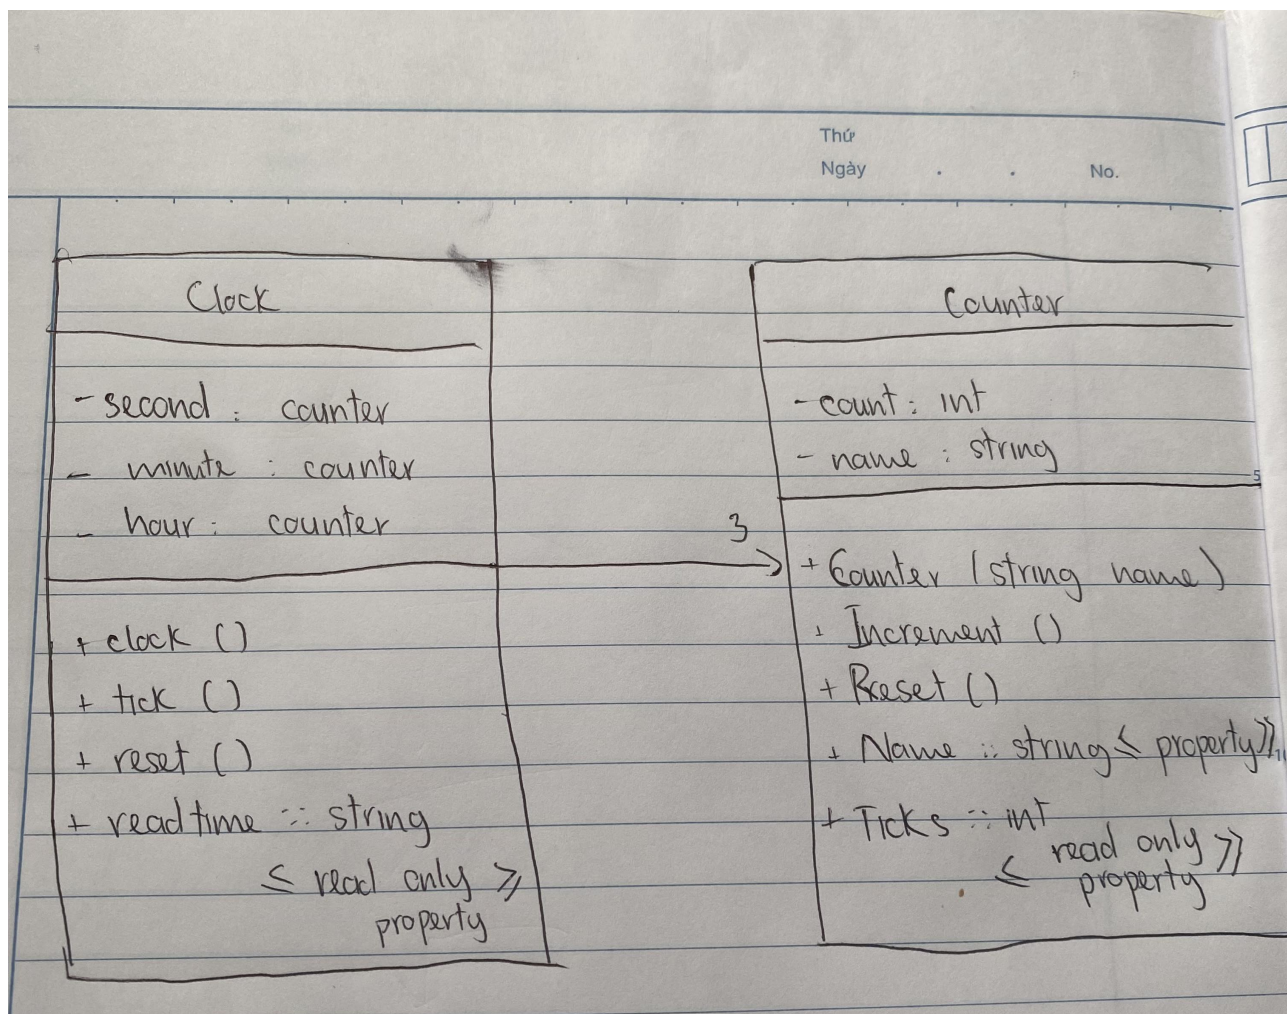 Thứ
Ngày . . No.
Clock
- second : counter
- minute : counter
- hour : counter
+ clock ()
+ tick ()
+ reset ()
+ readtime :: string
≤ read only ≥
property
3
Counter
- count : int
- name : string
5
+ Counter (string name)
+ Increment ()
+ Reset ()
+ Name :: string ≤ property >>
+ Ticks :: int
≤ read only >>
property